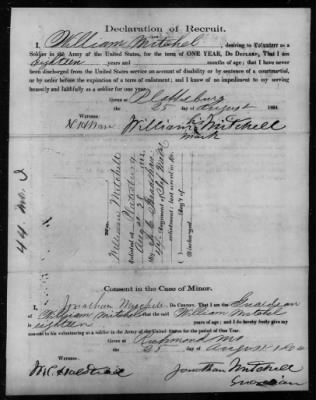 Declaration of Recruit.
I, William Mitchel, desiring to VOLUNTEER as a
Soldier in the Army of the United States, for the term of ONE YEAR, DO DECLARE, That I am
Eighteen years and months of age; that I have never
been discharged from the United States service on account of disability or by sentence of a courtmartial,
or by order before the expiration of a term of enlistment; and I know of no impediment to my serving
honestly and faithfully as a soldier for one year.
Given at Plattsburg
25 day of August 1864.
Witness:
William his Mitchell
mark
44 Mo. I
William Mitchell
Enlisted at Plattsburg
Aug 25 186
By
Regiment of
enlistment: last served in
Reg't of
Discharged
Consent in the Case of Minor.
I, Jonathan Mitchell DO CERTIFY, That I am the Guardian
of William Mitchel that the said William Mitchel
is eighteen years of age; and I do hereby freely give my
consent to his volunteering as a soldier in the Army of the United States for the period of One Year.
Given at Richmond Mo
the 25 day of August 1864
Witness:
Jonathan Mitchell
Guardian